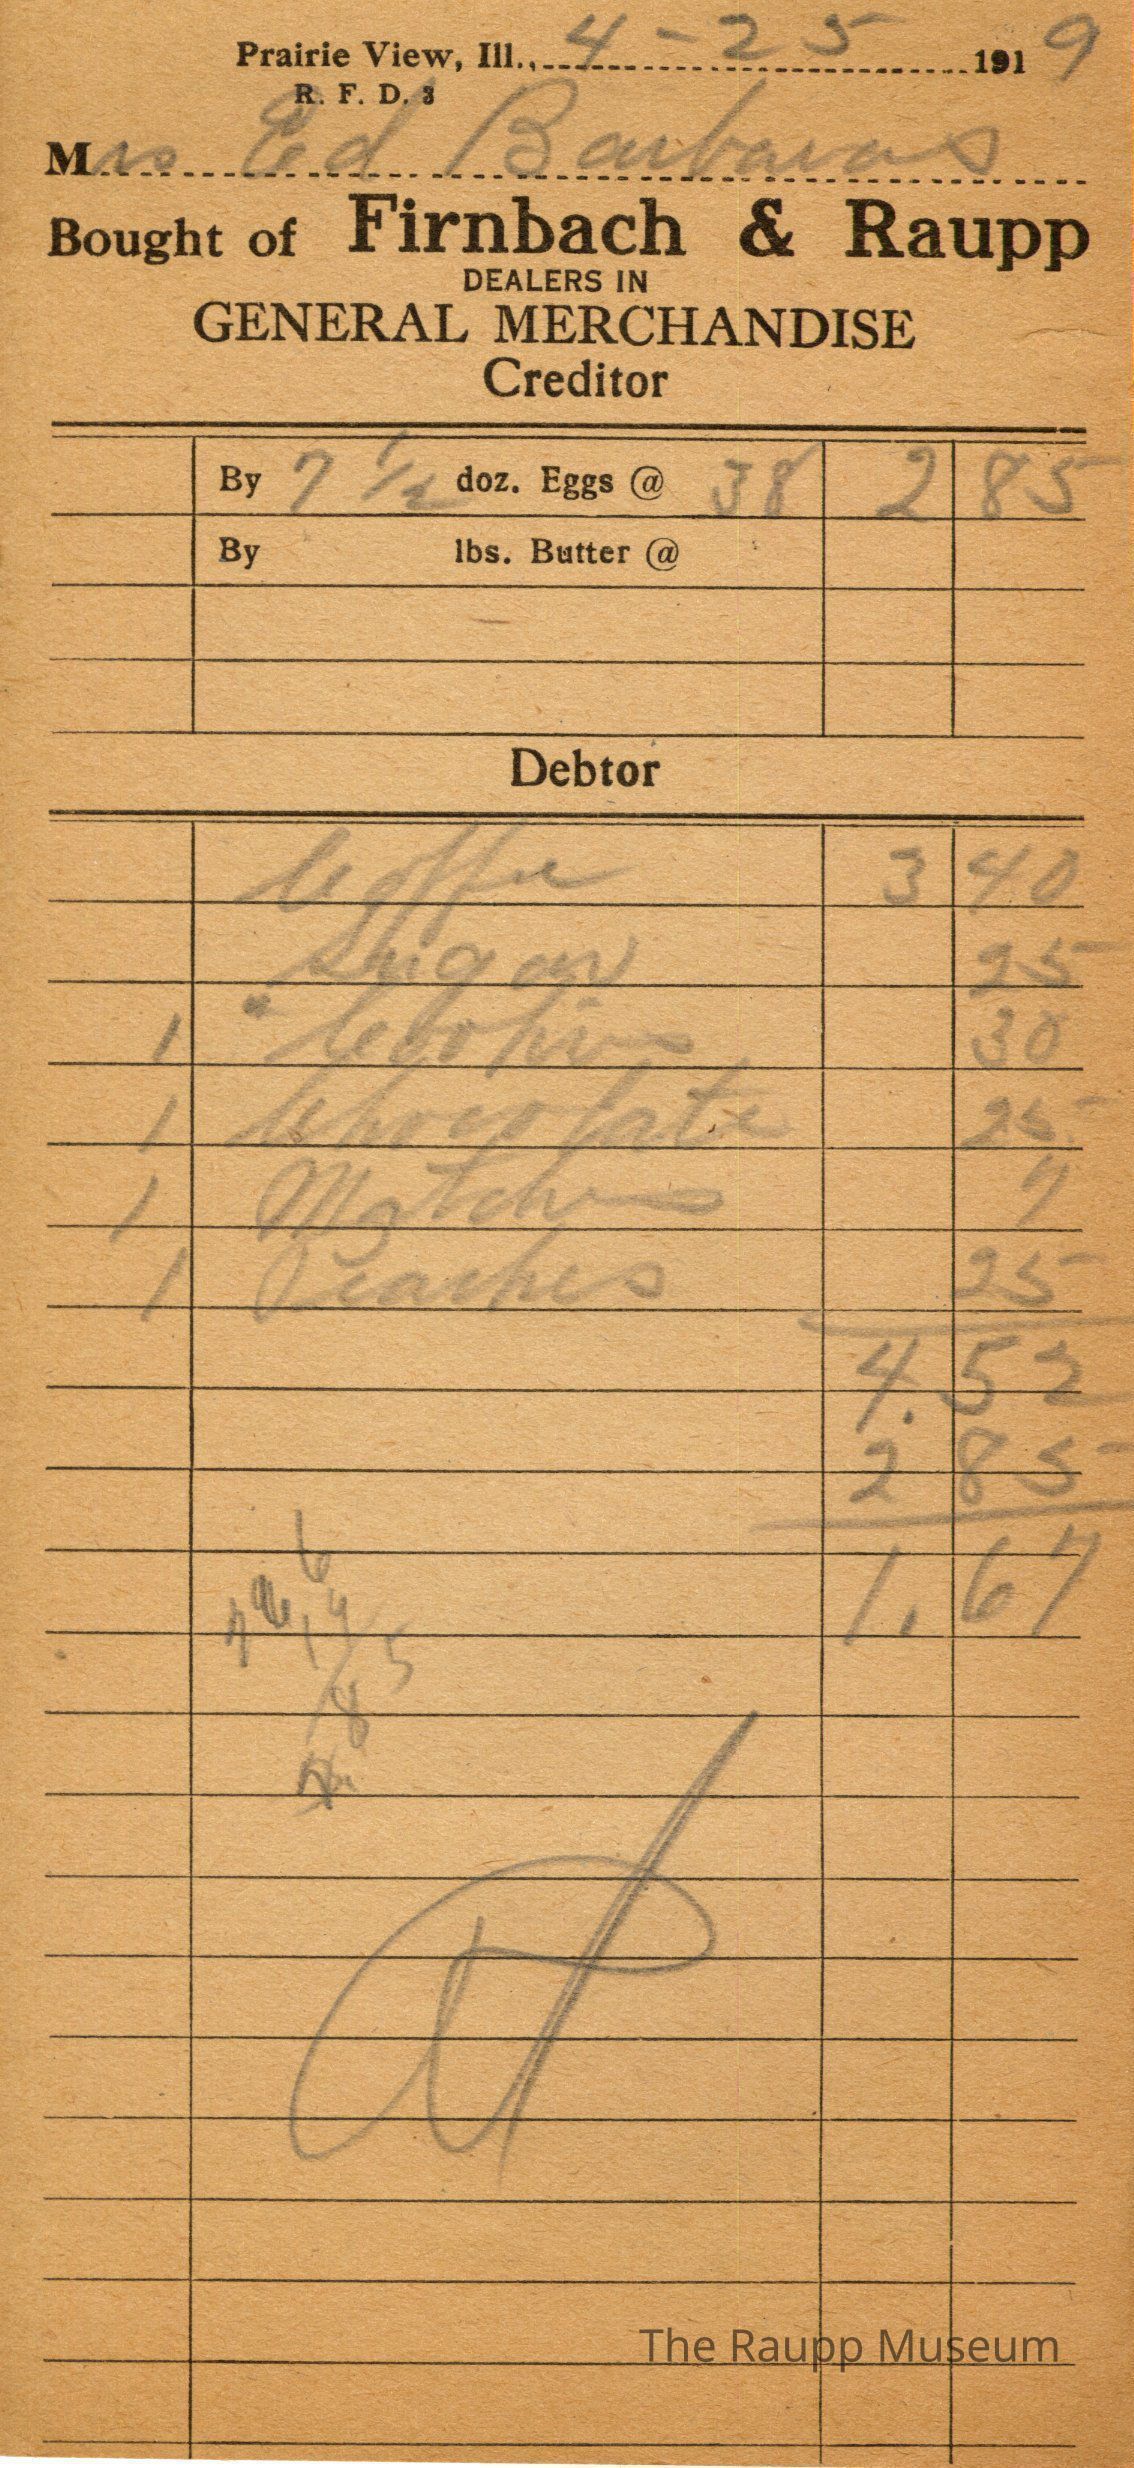 Prairie View, Ill., 4-25 1919
R. F. D. 3
Mrs Ed Barbaras
Bought of Firnbach & Raupp
DEALERS IN
GENERAL MERCHANDISE
Creditor
By 7 1/2 doz. Eggs @ 38 2 85
By lbs. Butter @
Debtor
Coffee 3 40
Sugar 25
1 " 30
1 Chocolate 25
1 Matches 7
1 Peaches 25
4.52
2 85
1.67
The Raupp Museum